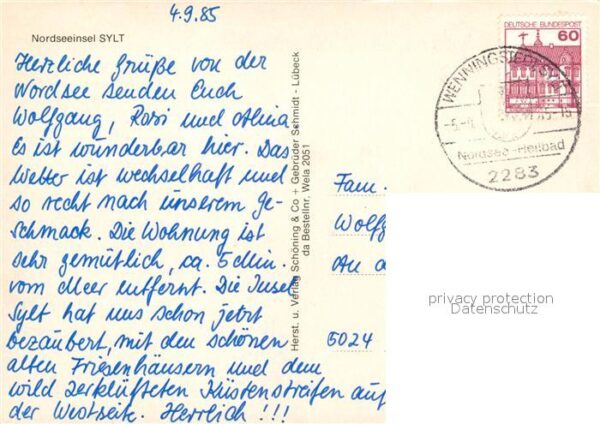 4.9.85
Nordseeinsel SYLT
Herzliche Grüße von der
Nordsee senden Euch
Wolfgang, Rosi und Alina.
Es ist wunderbar hier. Das
Wetter ist wechselhaft und
so recht nach unserem Ge-
schmack. Die Wohnung ist
sehr gemütlich, ca. 5 Min.
vom Meer entfernt. Die Insel
Sylt hat uns schon jetzt
bezaubert, mit den schönen
alten Friesenhäusern und dem
wild zerklüfteten Küstenstreifen auf
der Westseite. Herrlich !!!
Herst. u. Verlag Schöning & Co + Gebrüder Schmidt - Lübeck
da Bestellnr. Wela 2051
DEUTSCHE BUNDESPOST
60
WENNINGSTEDT
Nordsee-Heilbad
2283
Fam.
Wolfg
An d
5024
privacy protection
Datenschutz